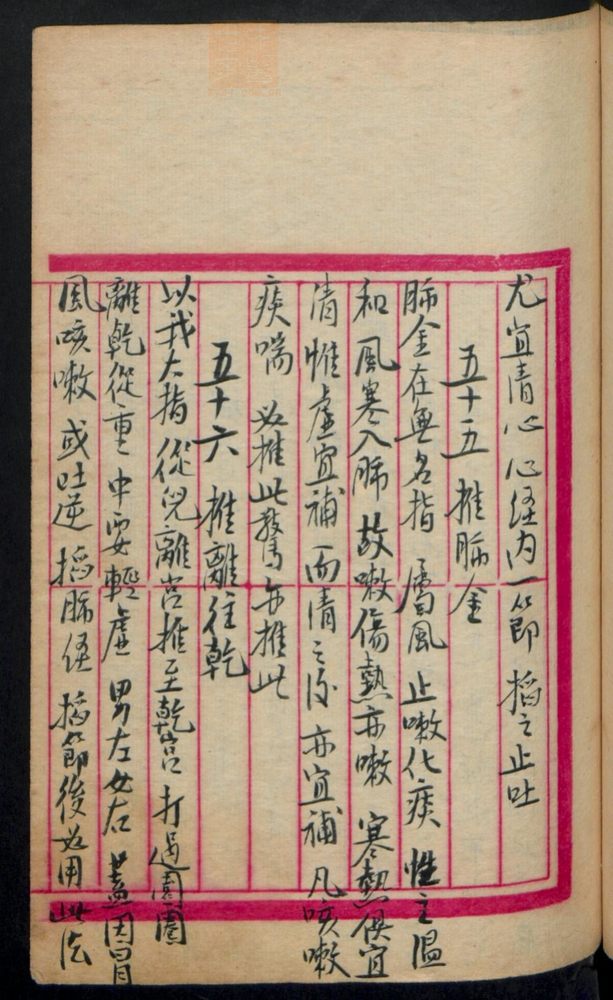 尤宜清心 心经内一節 掐之止吐
五十五 推肺金
肺金在無名指 屬風 止嗽化痰 性主溫
和 風寒入肺 故嗽傷熱亦嗽 寒熱俱宜
清 惟虛宜補 而清之後 亦宜補 凡咳嗽
痰喘 必推此驚亦推此
五十六 推離往乾
以我大指 從兒離宮推至乾宮 打過圓圈
離乾從重 中要輕虛 男左女右 蓋因冒
風咳嗽 或吐逆 掐肺経 掐節後必用此法